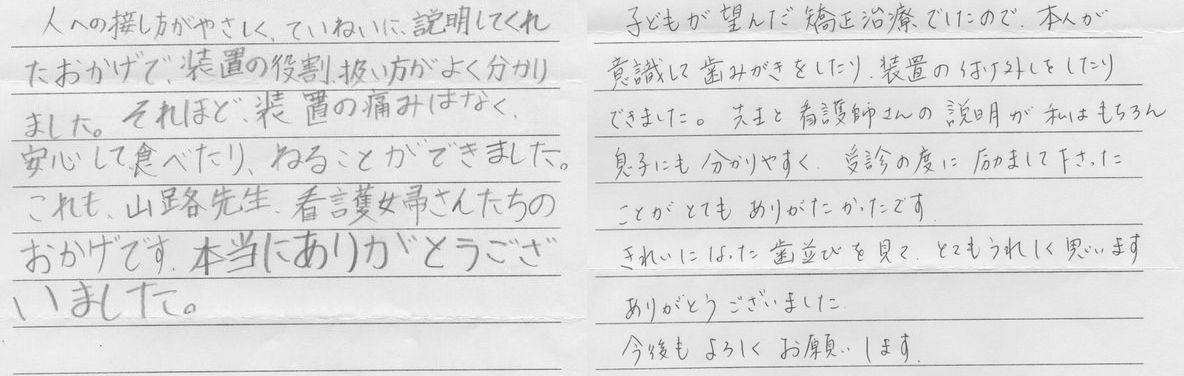 人への接し方がやさしく、ていねいに、説明してくれ
たおかげで、装置の役割、扱い方がよく分かり
ました。それほど、装置の痛みはなく、
安心して食べたり、ねることができました。
これも、山路先生、看護婦さんたちの
おかげです。本当にありがとうござ
いました。
子どもが望んだ矯正治療でしたので、本人が
意識して歯みがきをしたり、装置の付け外しをしたり
できました。先生と看護師さんの説明が私はもちろん
息子にも分かりやすく、受診の度に励まして下さった
ことがとてもありがたかったです。
きれいになった歯並びを見て、とてもうれしく思います
ありがとうございました。
今後もよろしくお願いします。